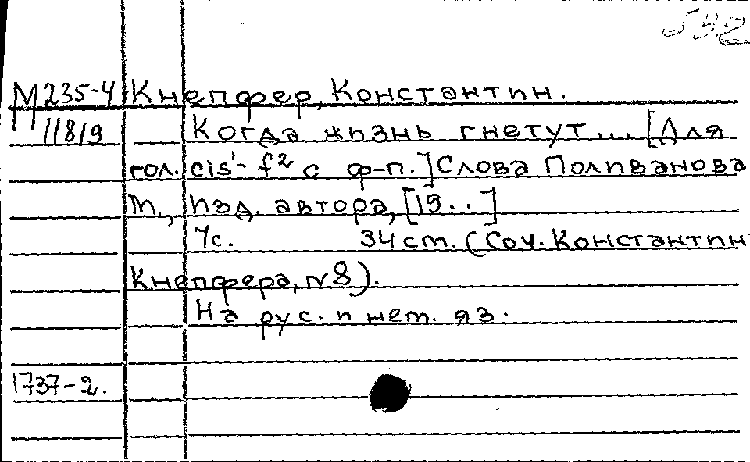 М235-4 Кнепфер, Константин.
11819 Когда жизнь гнетут... [Для
гол. cis'- f² с ф-п.] Слова Поливанова
М., изд. автора, [19..]
7с. 34 cm. (Соч. Константин
Кнепфера, N8).
На рус. и нем. яз.
1737-2.